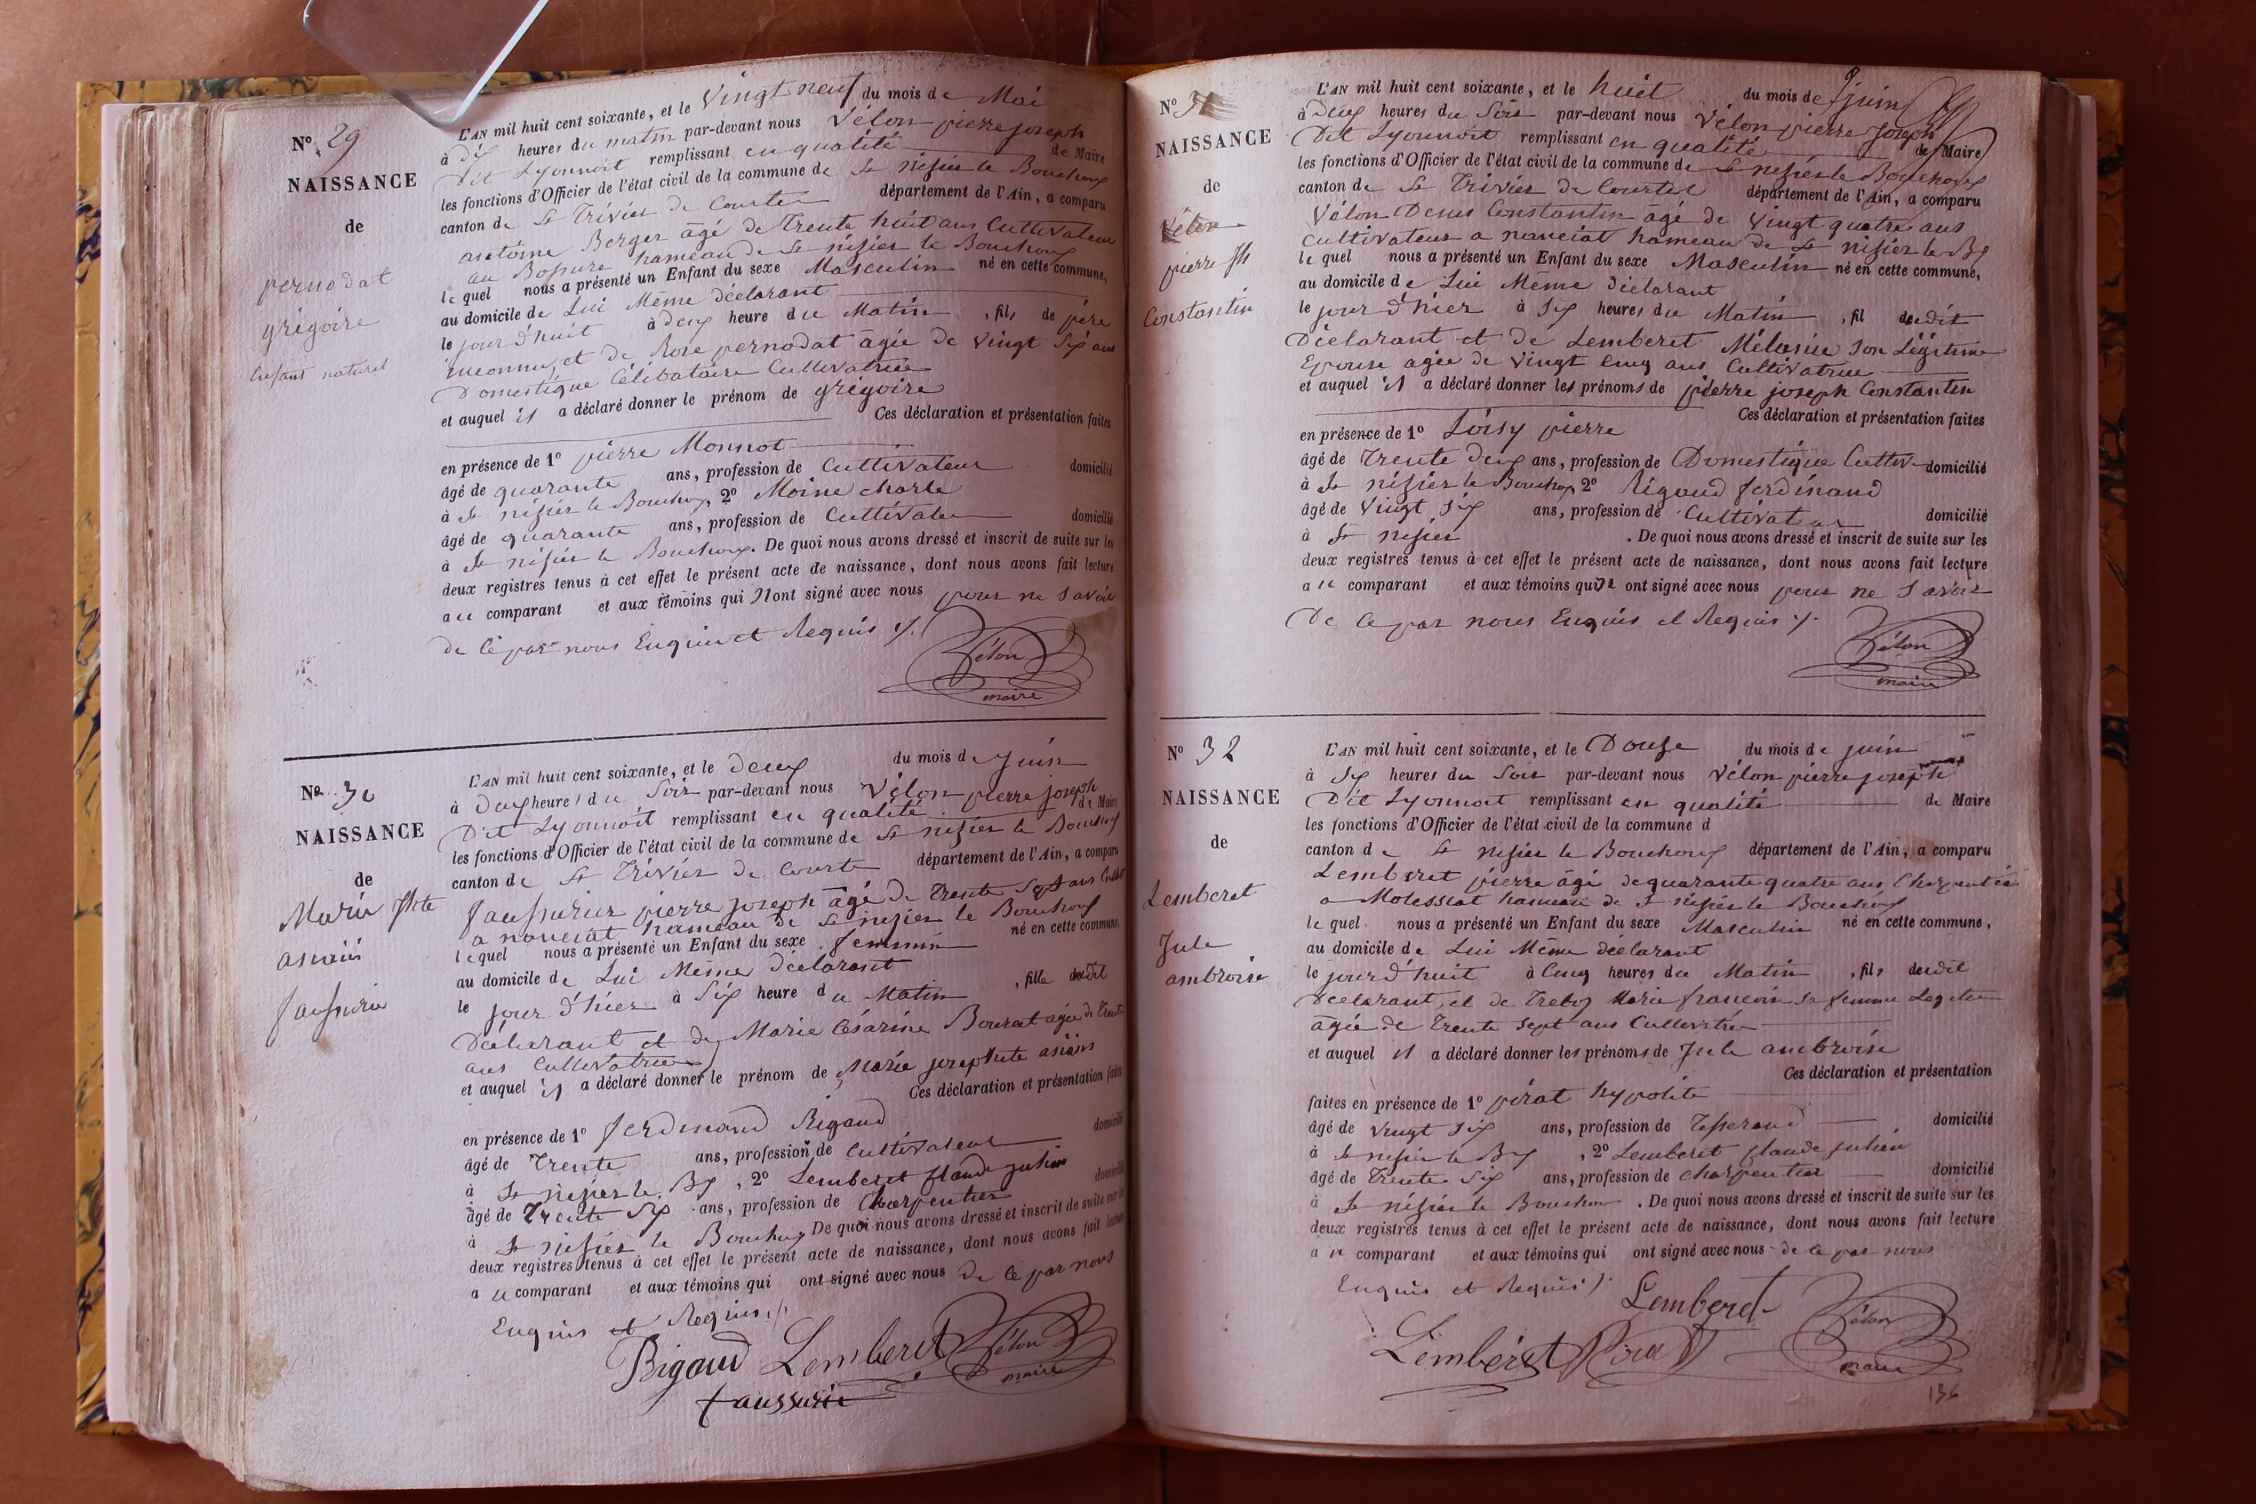 N° 29
NAISSANCE
de
pernodat
grégoire
Enfant naturel
L'AN mil huit cent soixante, et le vingt neuf du mois de Mai
à dix heures du matin par-devant nous Vélon pierre joseph
Dit Lyonnoit remplissant en qualité de Maire
les fonctions d'Officier de l'état civil de la commune de St nisier le Bouchoux
canton de St Trivier de Courte département de l'Ain, a comparu
antoine Berger âgé de Trente huit ans Cultivateur
au hameau de St nisier le Bouchoux
lequel nous a présenté un Enfant du sexe Masculin né en cette commune,
au domicile de Lui Même déclarant
le jour d'huit à deux heure du Matin, fils de père
inconnu, et de Rose pernodat agée de Vingt Six ans
Domestique Célibataire Cultivatrice
et auquel il a déclaré donner le prénom de grégoire
Ces déclaration et présentation faites
en présence de 1° pierre Monnot
âgé de quarante ans, profession de Cultivateur domicilié
à St nisier le Bouchoux, 2° Moine charle
âgé de quarante ans, profession de Cultivateur domicilié
à St nisier le Bouchoux. De quoi nous avons dressé et inscrit de suite sur les
deux registres tenus à cet effet le présent acte de naissance, dont nous avons fait lecture
au comparant et aux témoins qui n ont signé avec nous pour ne Savoir
de Ce par nous Enquis et Requis ./.
Vélon
maire
N° 30
NAISSANCE
de
Marie Jhte
asiaiis
faussurie
L'AN mil huit cent soixante, et le deux du mois de juin
à Deux heures du Soir par-devant nous Vélon pierre joseph
Dit Lyonnoit remplissant en qualité de Maire
les fonctions d'Officier de l'état civil de la commune de St nisier le Bouchoux
canton de St Trivier de Courte département de l'Ain, a comparu
faussurier pierre joseph âgé de trente Sept ans
a nanciat hameau de St nisier le Bouchoux
lequel nous a présenté un Enfant du sexe feminin né en cette commune
au domicile de Lui Même déclarant
le jour d'hier à Six heure du Matin, fille dudit
Déclarant et de Marie Césarine Bourat agée de Trente
ans Cultivatrice
et auquel il a déclaré donner le prénom de Marie josephte
Ces déclaration et présentation faites
en présence de 1° ferdinand Rigaud
âgé de Trente ans, profession de Cultivateur domicilié
à St nisier le Bx, 2° Lemberet Claude julien
âgé de Trente Six ans, profession de Charpentier domicilié
à St nisier le Bouchoux De quoi nous avons dressé et inscrit de suite sur les
deux registres tenus à cet effet le présent acte de naissance, dont nous avons fait lecture
au comparant et aux témoins qui ont signé avec nous de Ce par nous
Enquis et Requis ./.
Rigaud Lemberet Vélon
maire
faussurie
N° 31
NAISSANCE
de
Vélon
pierre Jh
Constantin
L'AN mil huit cent soixante, et le huit du mois de juin
à deux heures du Soir par-devant nous Vélon pierre Joseph
Dit Lyonnoit remplissant en qualité de Maire
les fonctions d'Officier de l'état civil de la commune de St nisier le Bouchoux
canton de St Trivier de Courtes département de l'Ain, a comparu
Vélon Denis Constantin âgé de Vingt quatre ans
Cultivateur a nanciat hameau de St nisier le Bx
lequel nous a présenté un Enfant du sexe Masculin né en cette commune,
au domicile de Lui Même déclarant
le jour d'hier à Six heures du Matin, fil dudit
Déclarant et de Lemberet Mélanie Son Légitime
Epouse agée de Vingt Cinq ans Cultivatrice
et auquel il a déclaré donner les prénoms de pierre joseph Constantin
Ces déclaration et présentation faites
en présence de 1° Loisy pierre
âgé de Trente deux ans, profession de Domestique Cultiv domicilié
à St nisier le Bouchoux 2° Rigaud ferdinand
âgé de Vingt Six ans, profession de Cultivateur domicilié
à St nisier. De quoi nous avons dressé et inscrit de suite sur les
deux registres tenus à cet effet le présent acte de naissance, dont nous avons fait lecture
au comparant et aux témoins qui n ont signé avec nous pour ne Savoir
De Ce par nous Enquis et Requis ./.
Vélon
maire
N° 32
NAISSANCE
de
Lemberet
Jule
ambroise
L'AN mil huit cent soixante, et le Douze du mois de juin
à Six heures du Soir par-devant nous Vélon pierre joseph
Dit Lyonnoit remplissant en qualité de Maire
les fonctions d'Officier de l'état civil de la commune d
canton de St nisier le Bouchoux département de l'Ain, a comparu
Lemberet pierre âgé de quarante quatre ans, Charpentier
a Molessiat hameau de St nisier le Bouchoux
lequel nous a présenté un Enfant du sexe Masculin né en cette commune,
au domicile de Lui Même déclarant
le jour d'huit à Cinq heures du Matin, fils dudit
Déclarant, et de Marie francoise Sa femme Legitime
âgée de Trente Sept ans Cultivatrice
et auquel il a déclaré donner les prénoms de Jule ambroise
Ces déclaration et présentation
faites en présence de 1° pirat hypolite
âgé de Vingt Six ans, profession de Tisserand domicilié
à St nisier le Bx, 2° Lemberet Claude julien
âgé de Trente Six ans, profession de Charpentier domicilié
à St nisier le Bouchoux. De quoi nous avons dressé et inscrit de suite sur les
deux registres tenus à cet effet le présent acte de naissance, dont nous avons fait lecture
au comparant et aux témoins qui ont signé avec nous de Ce par nous
Enquis et Requis ./.
Lemberet
Lemberet Pirat Vélon
maire
136